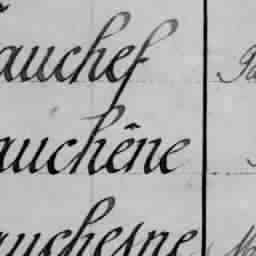 auchef
auchêne
auchesne